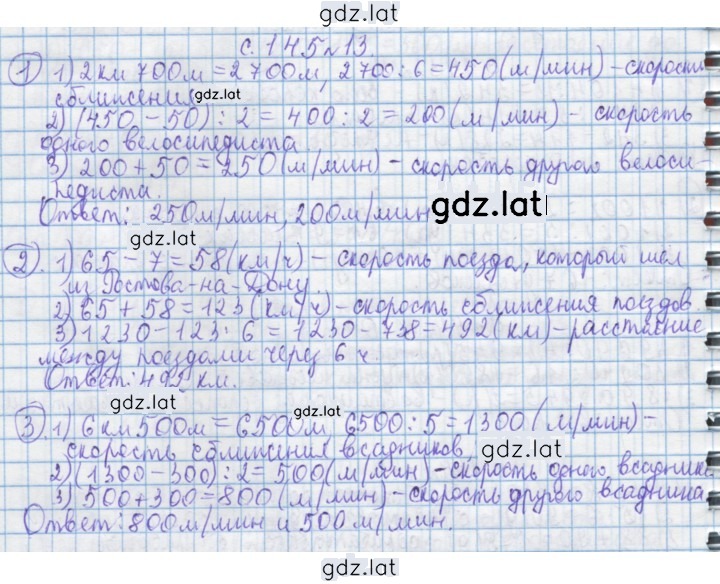 gdz.lat
с. 145 № 13
① 1) 2 км 700 м = 2 700 м, 2 700 : 6 = 450 (м/мин) – скорость
сближения. gdz.lat
2) (450 – 50) : 2 = 400 : 2 = 200 (м/мин) – скорость
одного велосипедиста.
3) 200 + 50 = 250 (м/мин) – скорость другого велоси-
педиста.
Ответ: 250 м/мин, 200 м/мин gdz.lat
②. 1) 65 – 7 = 58 (км/ч) – скорость поезда, который шёл
из Ростова-на-Дону.
2) 65 + 58 = 123 (км/ч) – скорость сближения поездов.
3) 1230 – 123 · 6 = 1230 – 738 = 492 (км) – расстояние
между поездами через 6 ч.
Ответ: 492 км.
gdz.lat
③. 1) 6 км 500 м = 6500 м 6500 : 5 = 1300 (м/мин) –
скорость сближения всадников, gdz.lat
2) (1300 – 300) : 2 = 500 (м/мин) – скорость одного всадника
3) 500 + 300 = 800 (м/мин) – скорость другого всадника
Ответ: 800 м/мин и 500 м/мин.
gdz.lat